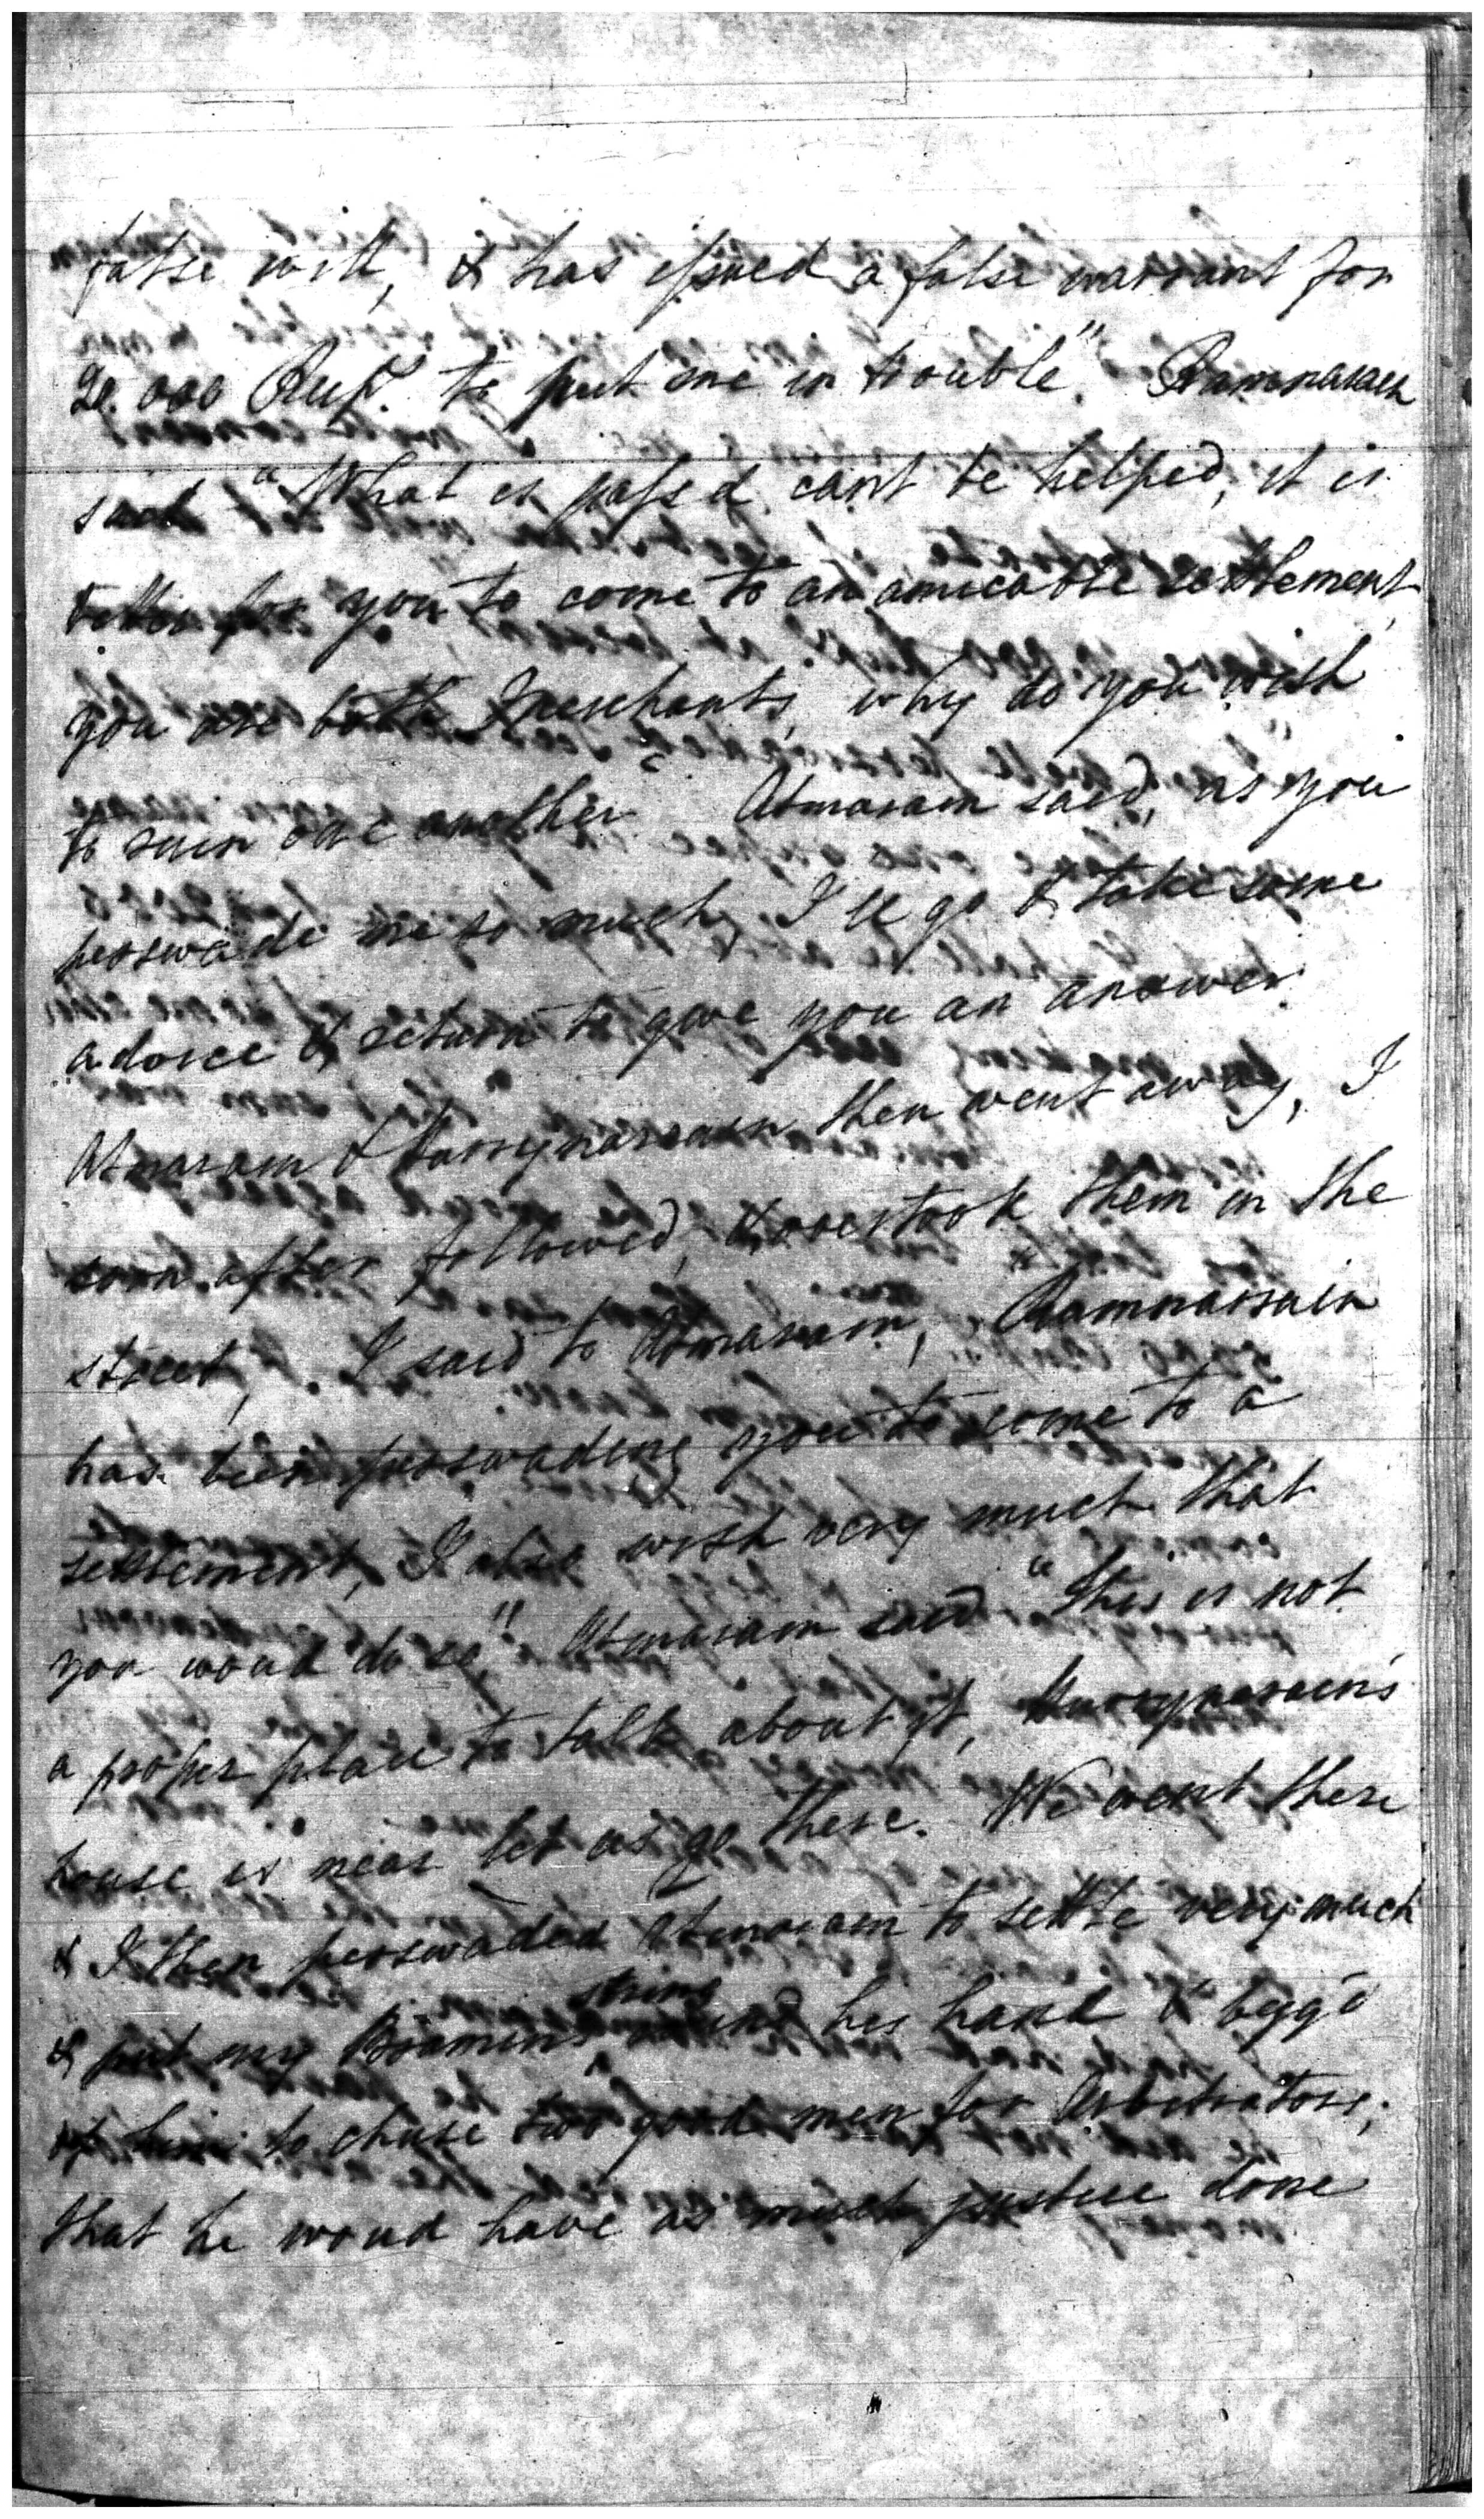 false writt, & has issued a false warrant for
20.000 Rups. to put me in trouble". Ramnarain
said "What is passed cant be helped, it is
better for you to come to an amicable settlement,
you are both Merchants, why do you wish
to ruin one another" Atmaram said, as you
perswade me so much, I'll go & take some
advice & return to give you an answer.
Atmaram & Hurrynarrain then went away, I
soon after followed, & overtook them in the
street, I said to Atmaram, "Ramnarrain
has been perswading you to come to a
settlement, I also wish very much that
you woud do so," Atmaram said "this is not
a proper place to talk about it, Hurrynarain's
house is near let us go there. We went there
& I then perswaded Atmaram to settle very much
& put my Bramins string round his hand & begg'd
of him to chuse two good men for Arbitrators,
that he woud have as much justice done